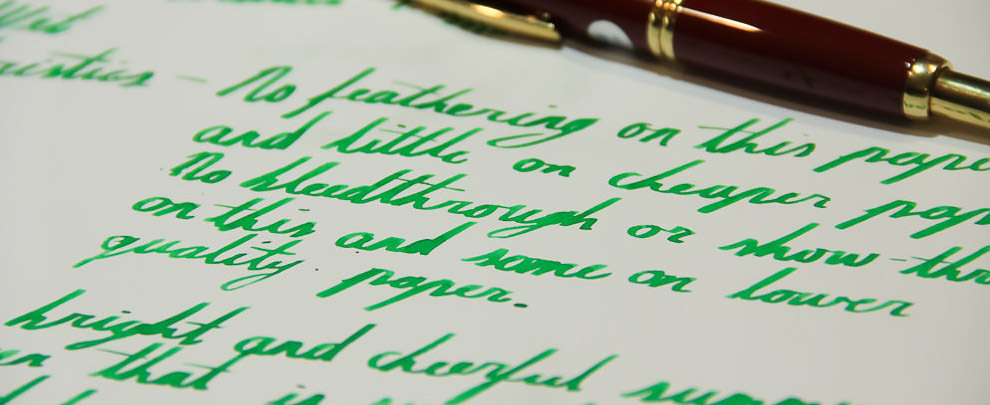 No feathering on this
and little on cheaper
No bleedthrough or show-
on this and some on lower
quality paper.
bright and cheerful
that is